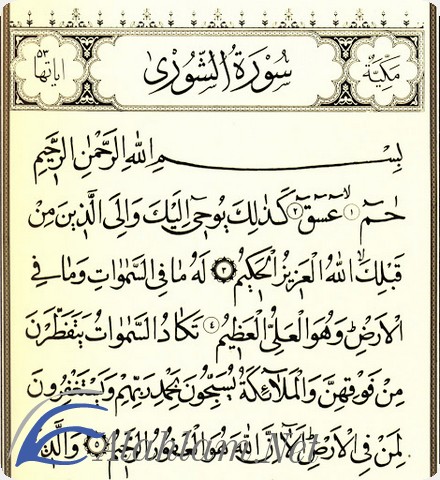 مَكِّيَّة سُورَةُ الشُّورٰى اٰيَاتُهَا ٥٣
بِسْمِ اللّٰهِ الرَّحْمٰنِ الرَّحِيمِ
حٰمٓ ۝١ عٓسٓقٓ ۝٢ كَذٰلِكَ يُوحِىٓ اِلَيْكَ وَاِلَى الَّذِينَ مِنْ
قَبْلِكَۙ اللّٰهُ الْعَزِيزُ الْحَكِيمُ ۝٣ لَهُ مَا فِى السَّمٰوَاتِ وَمَا فِى
الْاَرْضِۜ وَهُوَ الْعَلِىُّ الْعَظِيمُ ۝٤ تَكَادُ السَّمٰوَاتُ يَتَفَطَّرْنَ
مِنْ فَوْقِهِنَّ وَالْمَلٰٓئِكَةُ يُسَبِّحُونَ بِحَمْدِ رَبِّهِمْ وَيَسْتَغْفِرُونَ
لِمَنْ فِى الْاَرْضِۜ اَلَٓا اِنَّ اللّٰهَ هُوَ الْغَفُورُ الرَّحِيمُ ۝٥ وَالَّذِينَ
Alahlam.Net